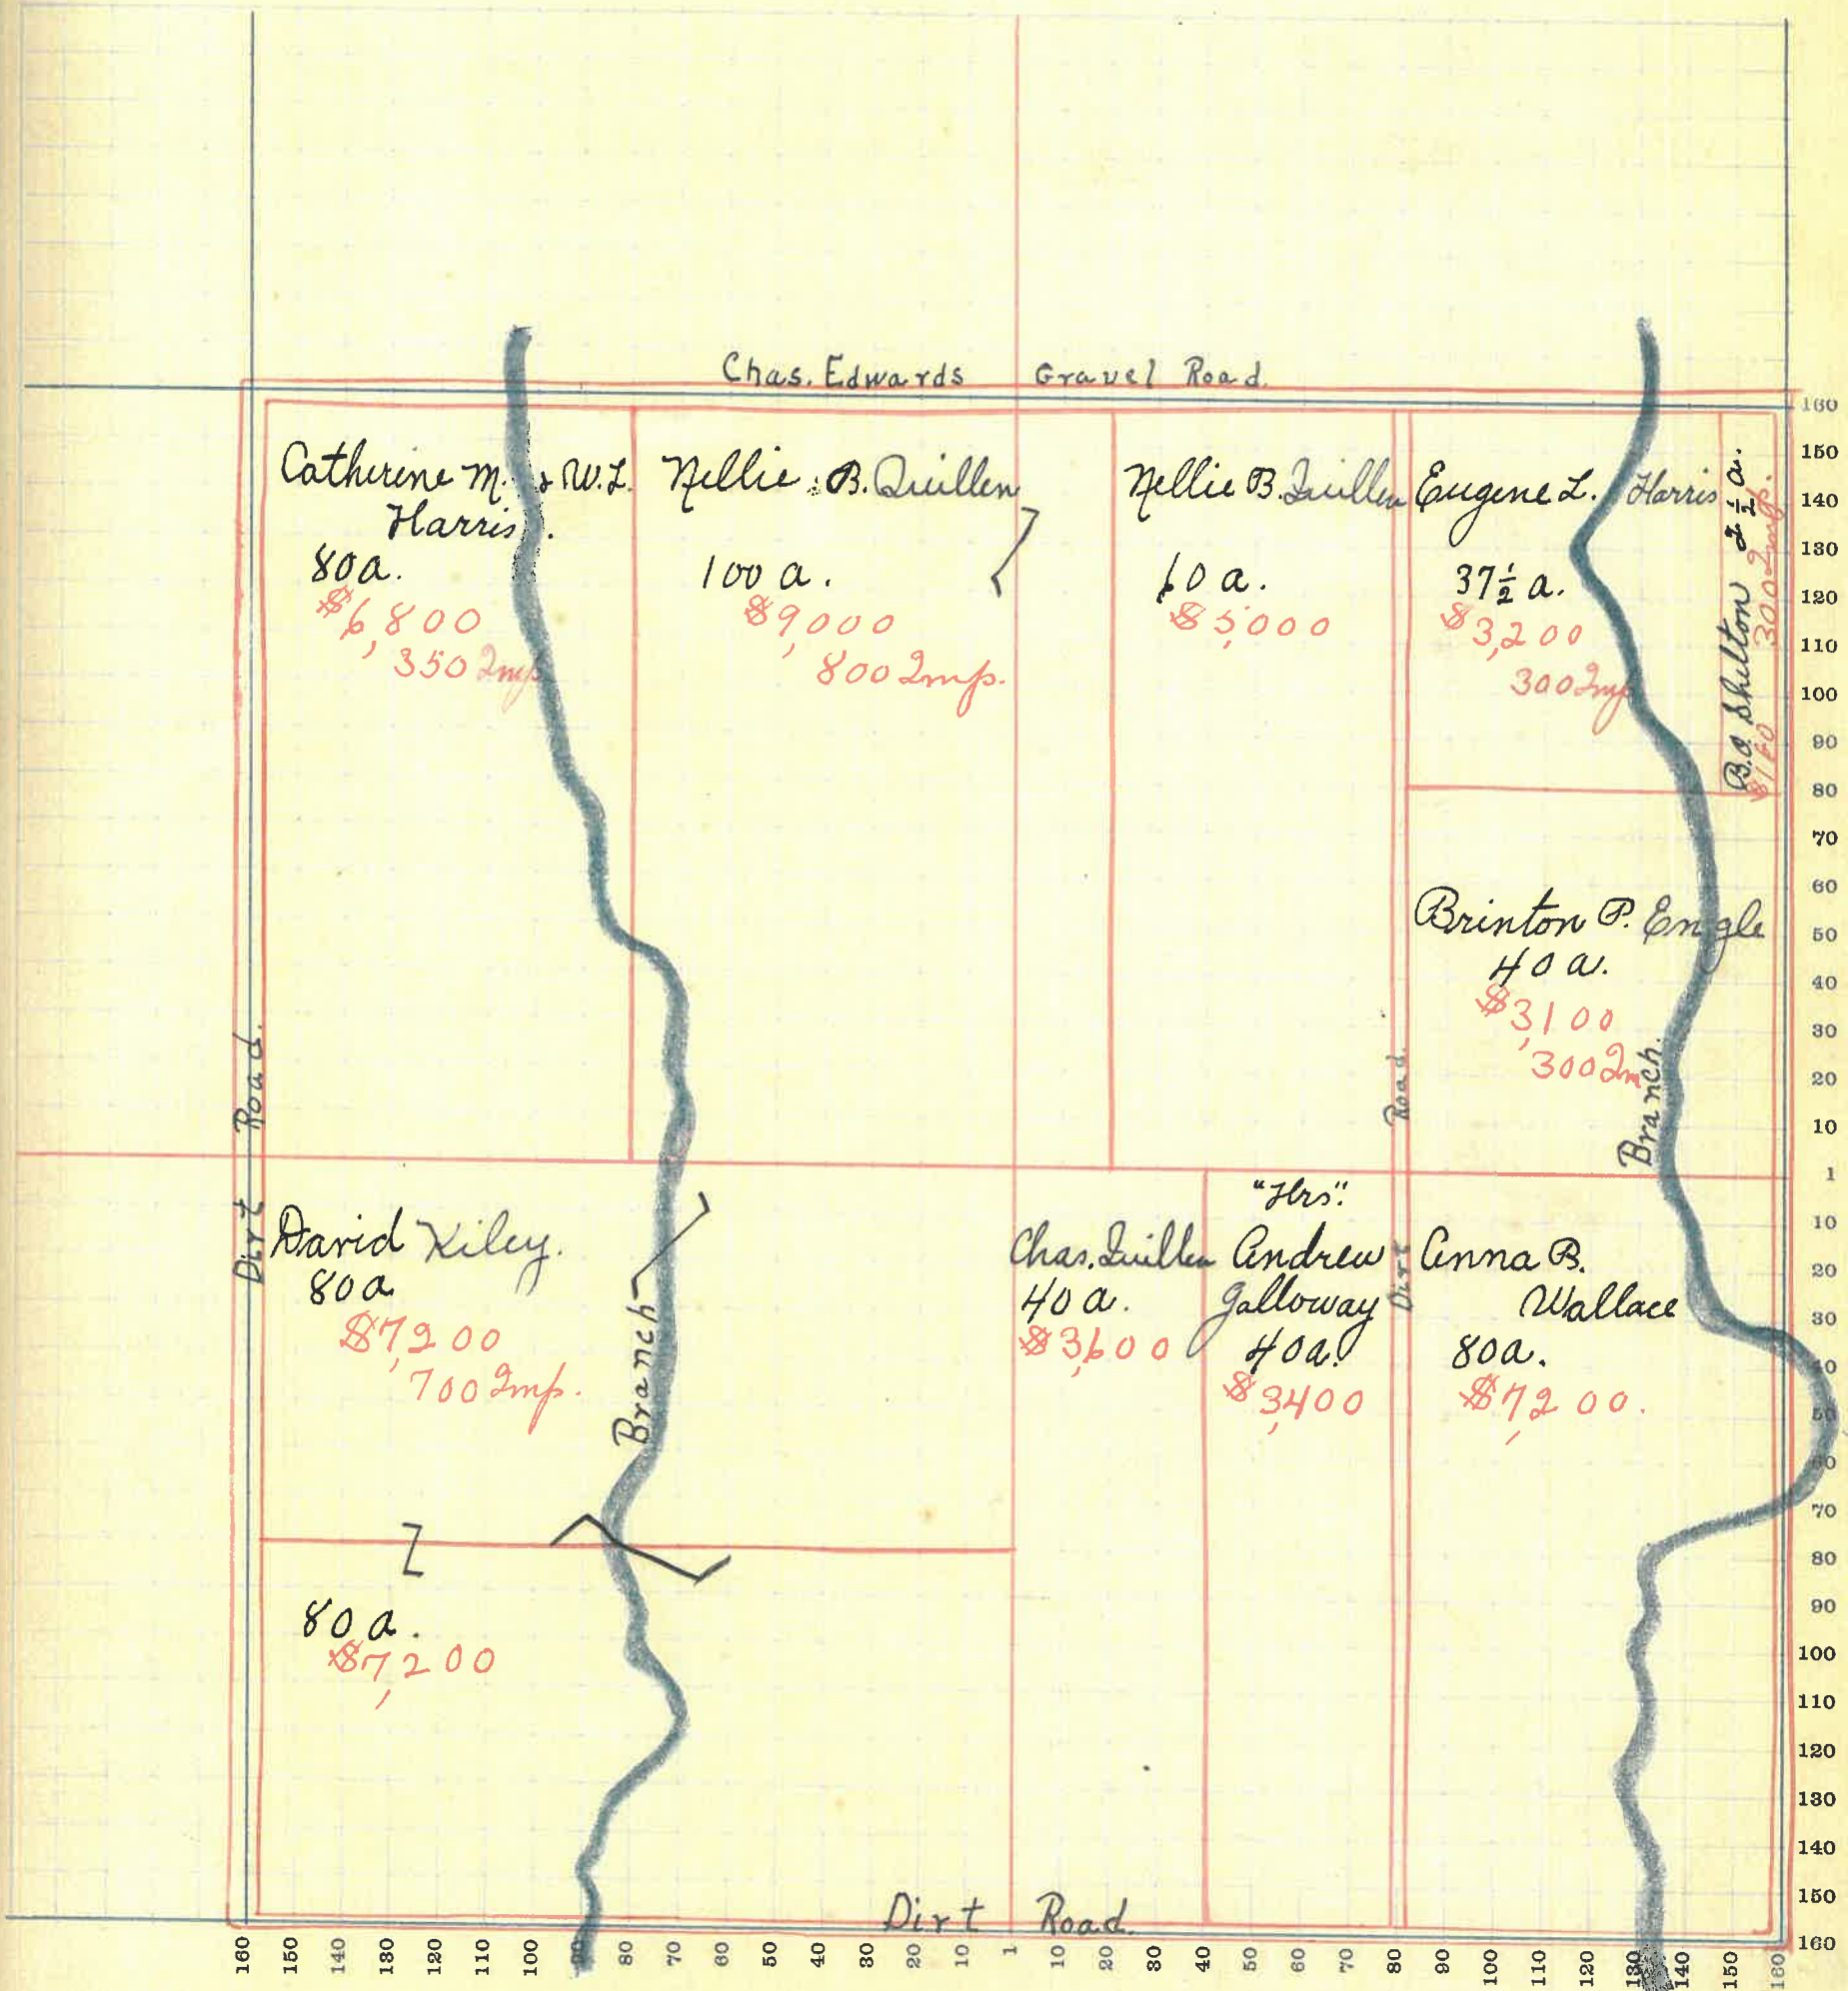 Chas. Edwards Gravel Road.
Catherine M. & W.L.
Harris.
80a.
$6,800
350 Imp.
Nellie B. Quillen
100 a.
$9,000
800 Imp.
Nellie B. Quillen
60 a.
$5,000
Eugene L. Harris
37½ a.
$3,200
300 Imp
B.O. Shelton 2½ a.
$160 300 Imp.
Brinton P. Engle
40 a.
$3,100
300 Im
Branch.
Dirt Road.
Dirt Road.
David Kiley.
80a
$7,200
700 Imp.
Branch
Chas. Quillen
40 a.
$3,600
"Hrs".
Andrew
Galloway
40a.
$3,400
Anna B.
Wallace
80a.
$7,200.
80 a.
$7,200
Dirt Road.
160
150
140
130
120
110
100
90
80
70
60
50
40
30
20
10
1
10
20
30
40
50
60
70
80
90
100
110
120
130
140
150
160
160 150 140 130 120 110 100 90 80 70 60 50 40 30 20 10 1 10 20 30 40 50 60 70 80 90 100 110 120 130 140 150 160